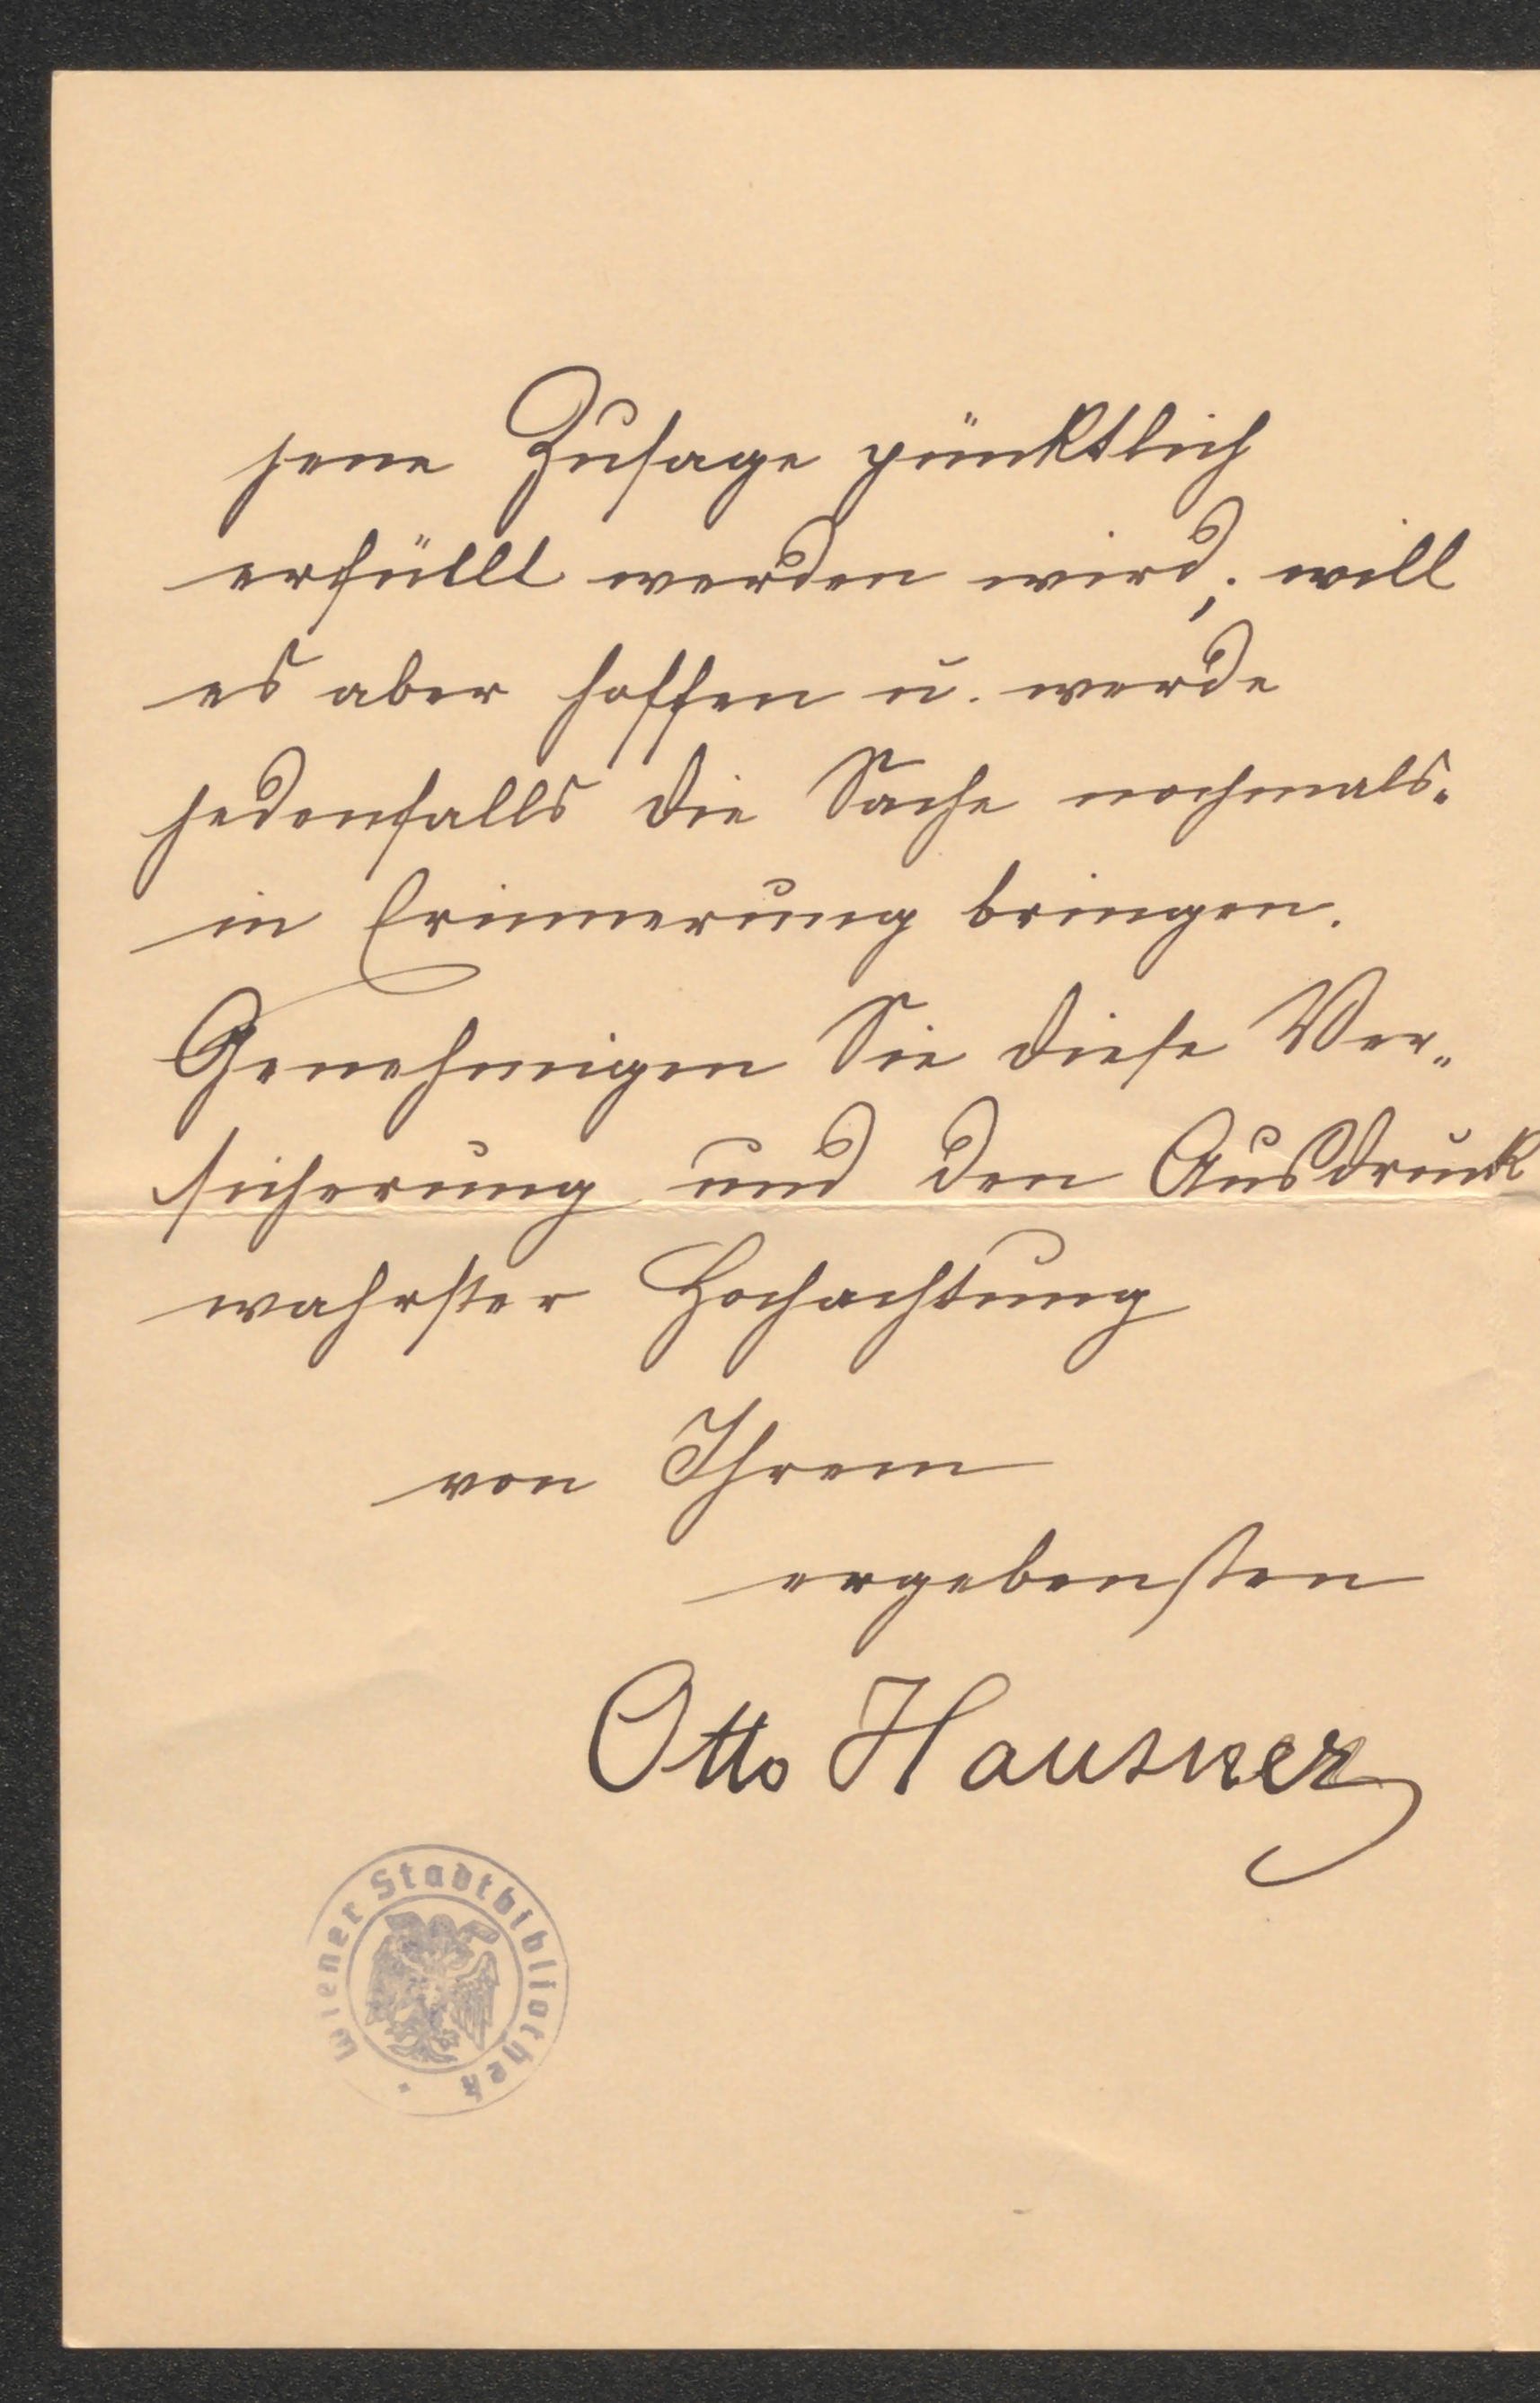 jene Zusage pünktlich
erfüllt werden wird; will
es aber hoffen u. werde
jedenfalls die Sache nochmals
in Erinnerung bringen.
Genehmigen Sie diese Ver-
sicherung und den Ausdruck
wahrster Hochachtung
von Ihrem
ergebensten
Otto Hausner
Wiener Stadtbibliothek